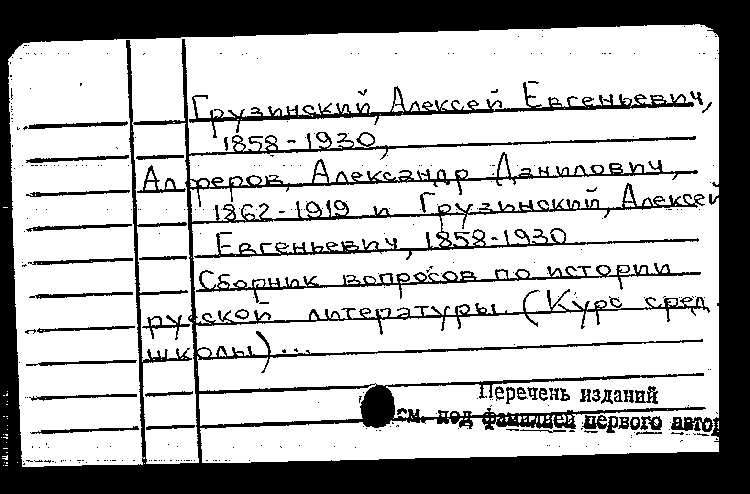 Грузинский, Алексей Евгеньевич,
1858-1930,
Алферов, Александр Данилович,
1862-1919 и Грузинский, Алексей
Евгеньевич, 1858-1930
Сборник вопросов по истории
русской литературы. (Курс сред.
школы)...
Перечень изданий
см. под фамилией первого автор